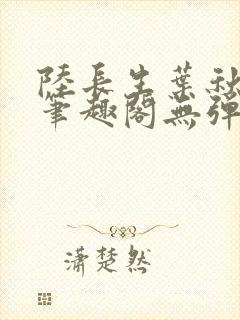 陸長生葉秋
筆趣閣無彈
瀟楚然